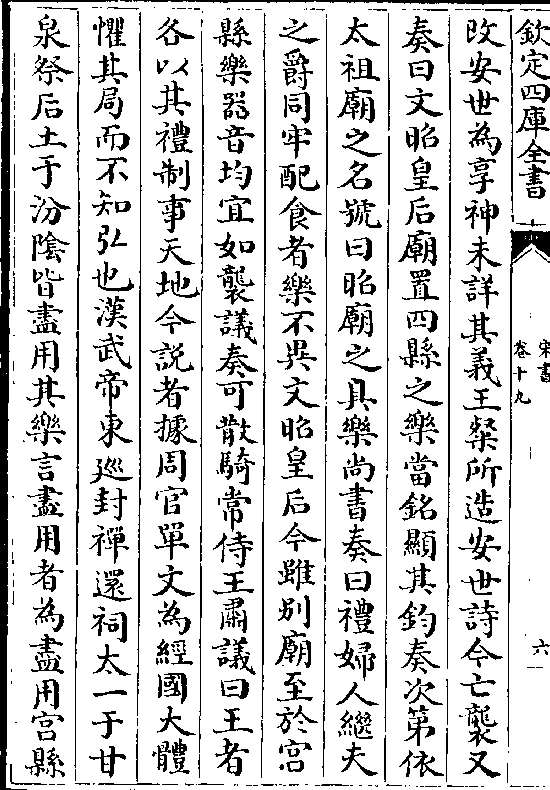 欽定四庫全書
宋書
卷十九
六
改安世為享神未詳其義王粲所造安世詩今亡襲又
奏曰文昭皇后廟置四縣之樂當銘顯其鈞奏次第依
太祖廟之名號曰昭廟之具樂尚書奏曰禮婦人繼夫
之爵同牢配食者樂不異文昭皇后今雖别廟至於宫
縣樂器音均宜如襲議奏可散騎常侍王肅議曰王者
各以其禮制事天地今説者據周官單文為經國大體
懼其局而不知弘也漢武帝東廵封禪還祠太一于甘
泉祭后土于汾隂皆盡用其樂言盡用者為盡用宫縣